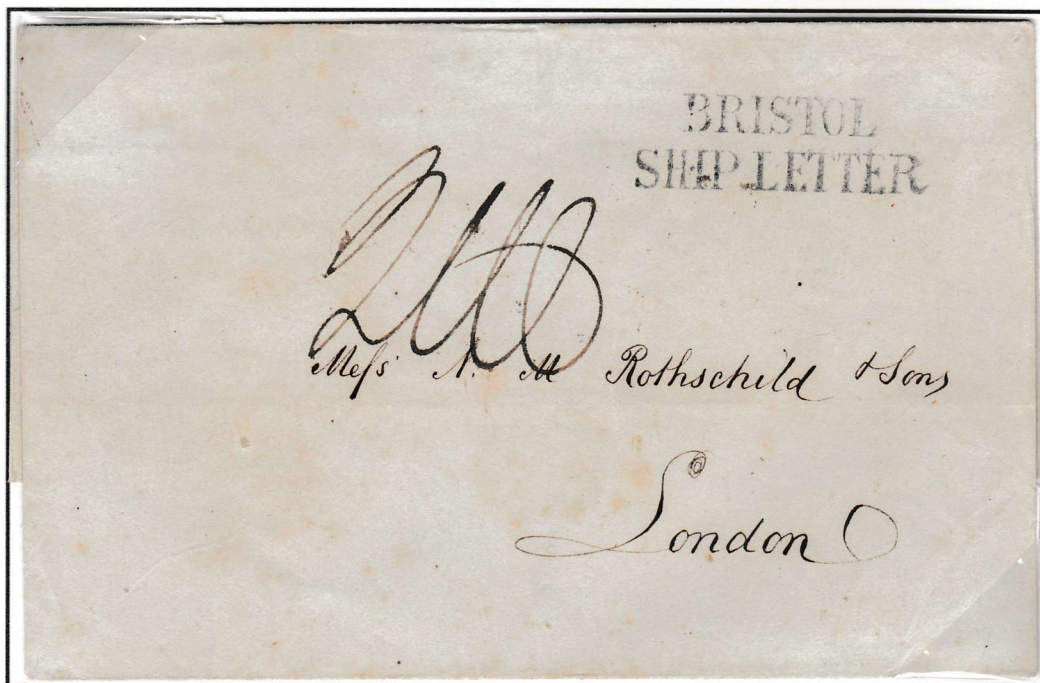 BRISTOL
SHIP LETTER
Meſs N. M Rothschild & Sons
London